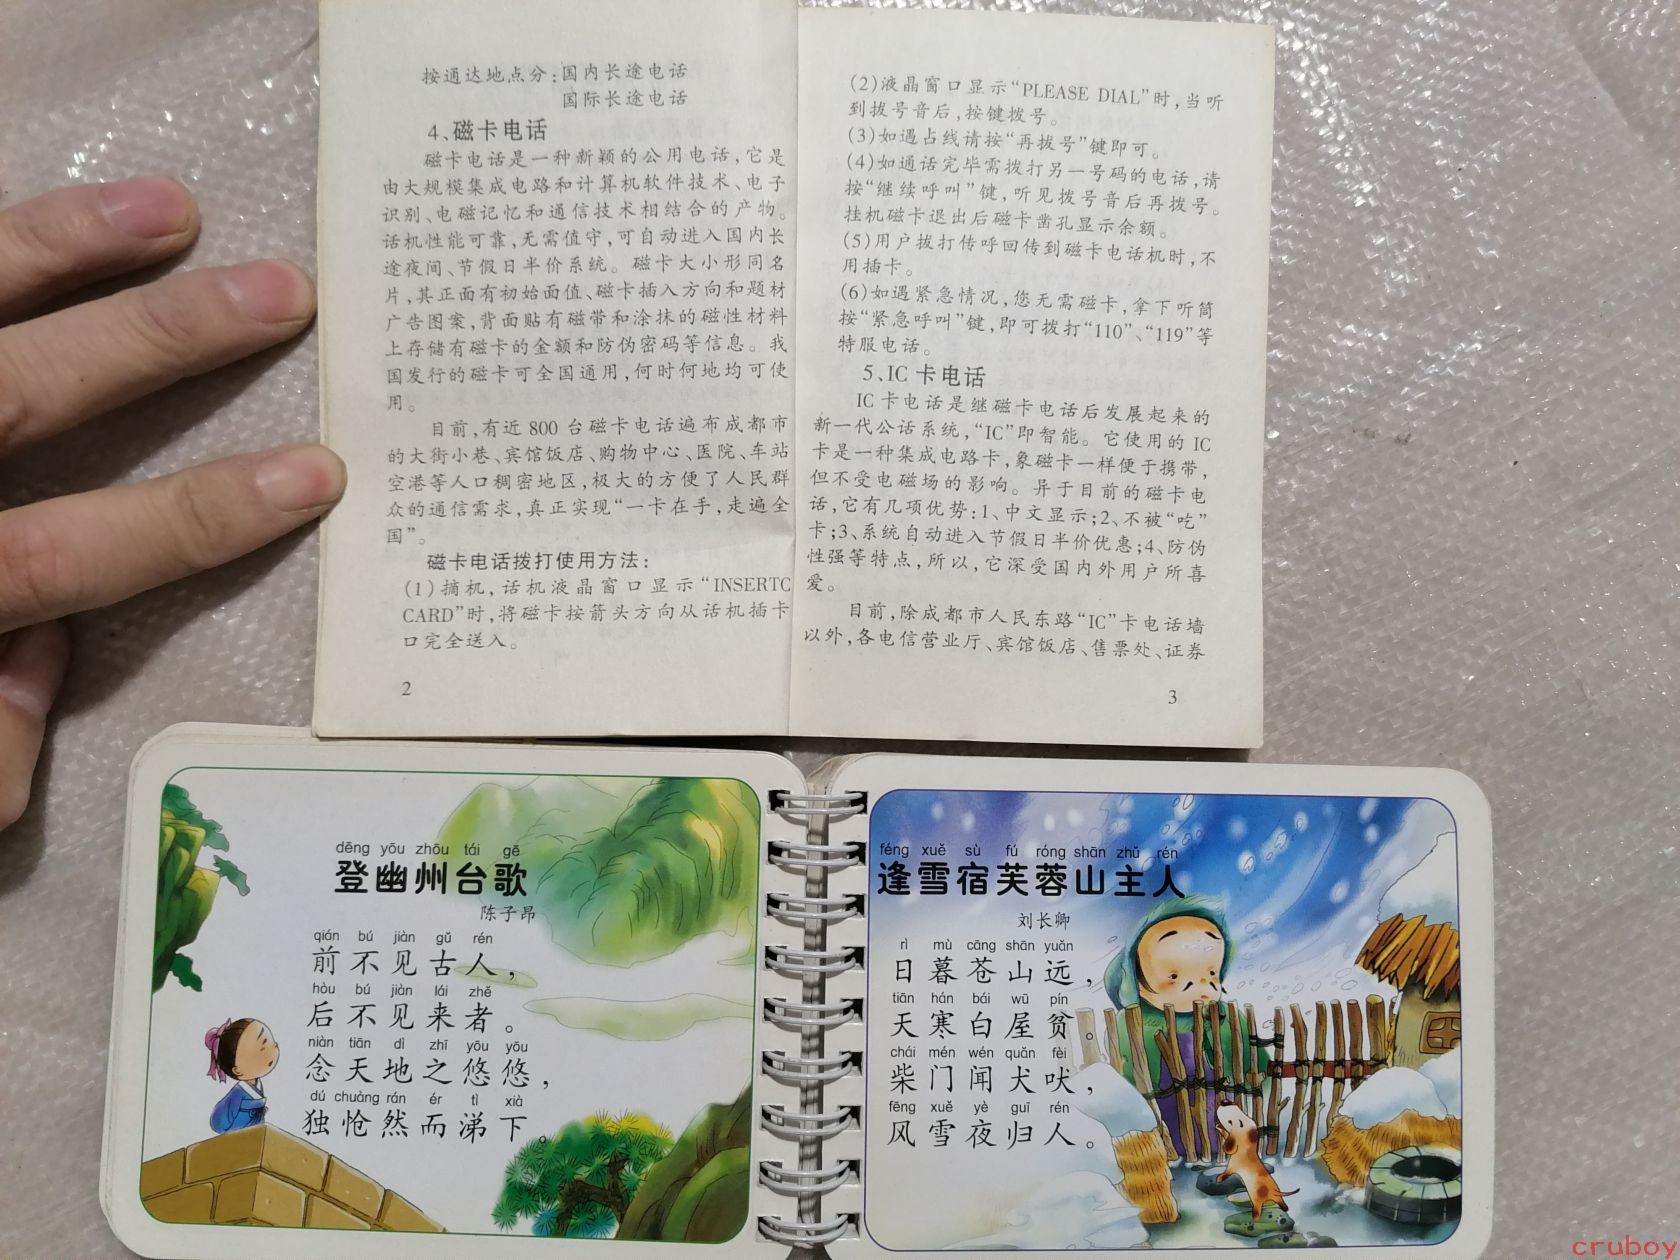 按通达地点分:国内长途电话
国际长途电话
4、磁卡电话
磁卡电话是一种新颖的公用电话,它是
由大规模集成电路和计算机软件技术、电子
识别、电磁记忆和通信技术相结合的产物。
话机性能可靠,无需值守,可自动进入国内长
途夜间、节假日半价系统。磁卡大小形同名
片,其正面有初始面值、磁卡插入方向和题材
广告图案,背面贴有磁带和涂抹的磁性材料
上存储有磁卡的金额和防伪密码等信息。我
国发行的磁卡可全国通用,何时何地均可使
用。
目前,有近 800 台磁卡电话遍布成都市
的大街小巷、宾馆饭店、购物中心、医院、车站
空港等人口稠密地区,极大的方便了人民群
众的通信需求,真正实现“一卡在手,走遍全
国”。
磁卡电话拨打使用方法:
(1)摘机,话机液晶窗口显示“INSERTC
CARD”时,将磁卡按箭头方向从话机插卡
口完全送入。
2
(2)液晶窗口显示“PLEASE DIAL”时,当听
到拔号音后,按键拨号。
(3)如遇占线请按“再拔号”键即可。
(4)如通话完毕需拨打另一号码的电话,请
按“继续呼叫”键,听见拨号音后再拨号。
挂机磁卡退出后磁卡凿孔显示余额。
(5)用户拔打传呼回传到磁卡电话机时,不
用插卡。
(6)如遇紧急情况,您无需磁卡,拿下听筒
按“紧急呼叫”键,即可拨打“110”、“119”等
特服电话。
5、IC 卡电话
IC 卡电话是继磁卡电话后发展起来的
新一代公话系统,“IC”即智能。它使用的 IC
卡是一种集成电路卡,象磁卡一样便于携带,
但不受电磁场的影响。异于目前的磁卡电
话,它有几项优势:1、中文显示;2、不被“吃”
卡;3、系统自动进入节假日半价优惠;4、防伪
性强等特点,所以,它深受国内外用户所喜
爱。
目前,除成都市人民东路“IC”卡电话墙
以外,各电信营业厅、宾馆饭店、售票处、证券
3
dēng yōu zhōu tái gē
登幽州台歌
陈子昂
qián bú jiàn gǔ rén
前不见古人,
hòu bú jiàn lái zhě
后不见来者。
niàn tiān dì zhī yōu yōu
念天地之悠悠,
dú chuàng rán ér tì xià
独怆然而涕下。
féng xuě sù fú róng shān zhǔ rén
逢雪宿芙蓉山主人
刘长卿
rì mù cāng shān yuǎn
日暮苍山远,
tiān hán bái wū pín
天寒白屋贫。
chái mén wén quǎn fèi
柴门闻犬吠,
fēng xuě yè guī rén
风雪夜归人。
cruboy